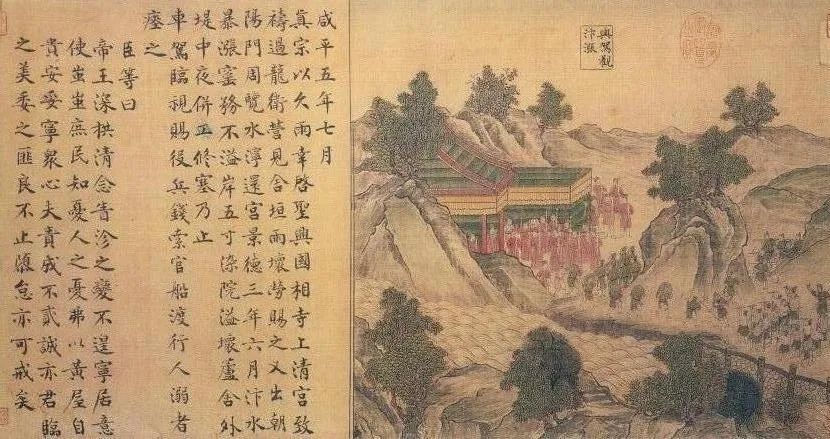 輿駕觀
汴漲
咸平五年七月
真宗以久雨幸啓聖興國相寺上清宮致
禱過龍衛營見舍垣雨壞勞賜之又出朝
陽門周覽水濘還宮景德三年六月汴水
暴漲窰務不溢岸五寸染院溢壞廬舍外
堤中夜併工修塞乃止
車駕臨視賜役兵錢索官船渡行人溺者
瘞之
臣等曰
帝王深拱清念眚沴之變不遑寧居意
使蚩蚩庶民知憂人之憂弗以黃屋自
貴安妥寧衆心夫責成不貳誠亦君臨
之美委之匪良不止隳怠亦可戒矣